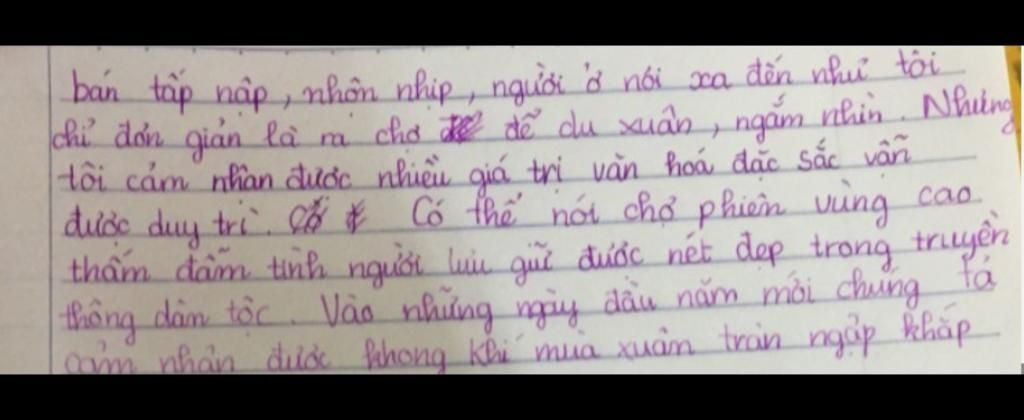 bán tấp nập, nhộn nhịp, người ở nói xa đến như tôi
chỉ đơn giản là ra chợ để du xuân, ngắm nhìn. Nhưng
tôi cảm nhận được nhiều giá trị văn hoá đặc sắc vẫn
được duy trì. Có thể nói chợ phiên vùng cao
thấm đẫm tình người lưu giữ được nét đẹp trong truyền
thông dân tộc. Vào những ngày đầu năm mới chúng ta
cảm nhận được không khí mùa xuân tràn ngập khắp